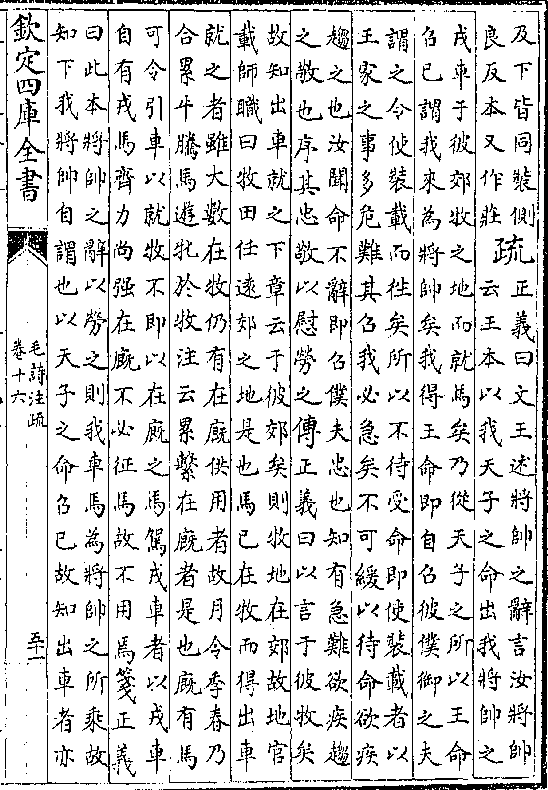 及下皆同裝側
良反本又作莊
疏
正義曰文王述將帥之辭言汝將帥
云王本以我天子之命出我將帥之
戎車于彼郊牧之地而就馬矣乃從天子之所以王命
召已謂我來為將帥矣我得王命即自召彼僕御之夫
謂之令使裝載而徃矣所以不待受命即使裝載者以
王家之事多危難其召我必急矣不可緩以待命欲疾
趨之也汝聞命不辭即召僕夫忠也知有急難欲疾趨
之敬也序其忠敬以慰勞之傳正義曰以言于彼牧矣
故知出車就之下章云于彼郊矣則牧地在郊故地官
載師職曰牧田任遠郊之地是也馬已在牧而得出車
就之者雖大數在牧仍有在廐供用者故月令季春乃
合累牛騰馬遊牝於牧注云累繫在廐者是也廐有馬
可令引車以就牧不即以在廐之馬駕戎車者以戎車
自有戎馬齊力尚强在廐不必征馬故不用焉箋正義
曰此本將帥之辭以勞之則我車馬為將帥之所乘故
知下我將帥自謂也以天子之命召已故知出車者亦
欽定四庫全書
毛詩注疏
卷十六
五十一